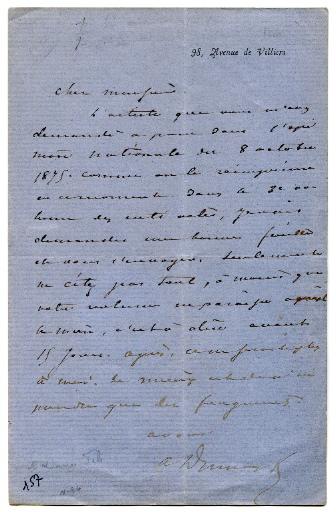 98, Avenue de Villiers
Cher monsieur
L'article que vous m'avez
demandé a paru dans l'opi
nion nationale du 8 octobre
1875. comme on le réimprime
en ce moment dans le 3e vo
lume des
demander une bonne feuille
et vous l'envoyer. Seulement
ne citez pas tout, à moins que
votre volume ne paraisse après
le mien, c'est à dire avant
15 jours.
à moi. Le mieux
prendre que des fragments.
à vous
A Dumas f
157